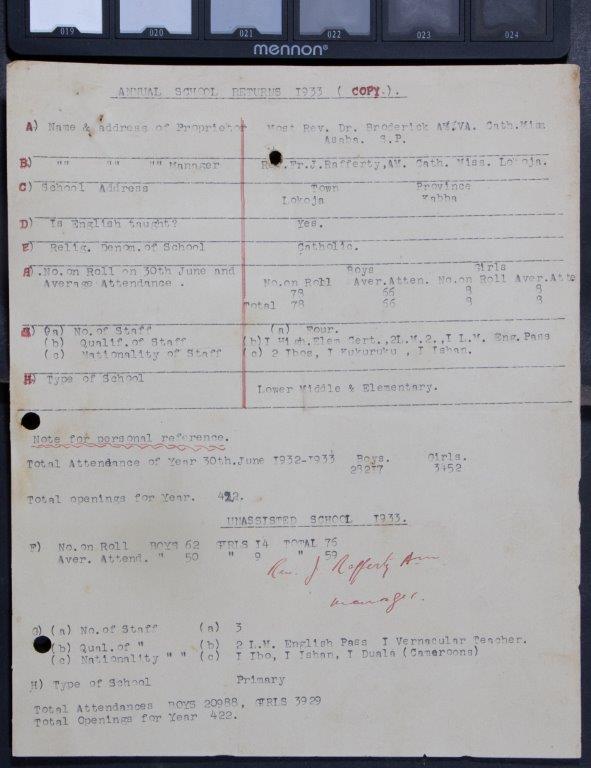 019 020 021 022 023 024
mennon®
ANNUAL SCHOOL RETURNS I933 ( COPY.).
A) Name & address of Proprietor Most Rev. Dr. Broderick Cath.Miss
Asaba. S.P.
B) "" "" "" Manager Rev.Fr.J.Rafferty,AM. Cath. Miss. Lokoja.
C) School Address Town Province
Lokoja Kabba
D) Is English taught? Yes.
E) Relig. Denom.of School Catholic.
F).No.on Roll on 30th June and Boys Girls
Average Attendance . No.on Roll Aver.Atten. No.on Roll Aver.Atte
78 66 8 8
Total 78 66 8 8
G) (a) No.of Staff (a) Four.
(b) Qualif.of Staff (b)I High.Elem Cert.,2L.M.2.,I L.M. Eng.Pass
(c) Nationality of Staff (c) 2 Ibos, I Kukuruku , I Ishan.
H) Type of School
Lower Middle & Elementary.
Note for personal reference.
Total Attendance of Year 30th.June I932-I933 Boys. Girls.
28277 3452
Total openings for Year. 422.
UNASSISTED SCHOOL I933.
F) No.on Roll BOYS 62 GIRLS I4 TOTAL 76
Aver. Attend. " 50 " 9 " 59
Rev. J Rafferty
manager.
G) (a) No.of Staff (a) 3
(b) Qual.of " (b) 2 L.M. English Pass I Vernacular Teacher.
(c) Nationality " " (c) I Ibo, I Ishan, I Duala (Cameroons)
H) Type of School Primary
Total Attendances BOYS 20988, GIRLS 3929
Total Openings for Year 422.